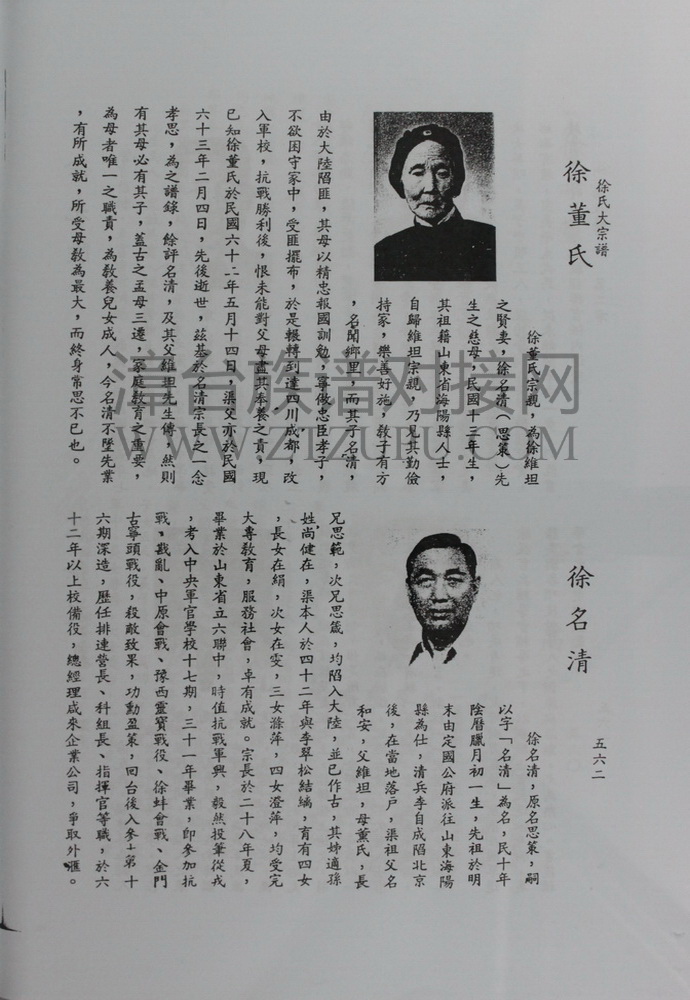 徐氏大宗譜
徐董氏
徐董氏宗親，為徐維坦
之賢妻，徐名清（思策）先
生之慈母，民國十三年生，
其祖籍山東省海陽縣人士，
自歸維坦宗親，乃見其勤儉
持家，樂善好施，教子有方
，名聞鄉里，而其子名清，
由於大陸陷匪，其母以精忠報國訓勉，寧做忠臣孝子，
不欲困守家中，受匪擺布，於是輾轉到達四川成都，改
入軍校，抗戰勝利後，恨未能對父母盡其奉養之責，現
已知徐董氏於民國六十二年五月十四日，渠父亦於民國
六十三年二月四日，先後逝世，茲基於名清宗長之一念
孝思，為之譜錄，餘評名清，及其父維坦先生傳，然則
有其母必有其子，蓋古之孟母三遷，家庭教育之重要，
為母者唯一之職責，為教養兒女成人，今名清不墜先業
，有所成就，所受母教為最大，而終身常思不已也。
徐名清
徐名清，原名思策，嗣
以字「名清」為名，民十年
陰曆臘月初一生，先祖於明
末由定國公府派往山東海陽
縣為仕，清兵李自成陷北京
後，在當地落戶，渠祖父名
和安，父維坦，母董氏，長
兄思範，次兄思箴，均陷入大陸，並已作古，其姊適孫
姓尚健在，渠本人於四十二年與李翠松結縭，育有四女
，長女在絹，次女在雯，三女滌萍，四女澄萍，均受完
大專教育，服務社會，卓有成就。宗長於二十八年夏，
畢業於山東省立六聯中，時值抗戰軍興，毅然投筆從戎
，考入中央軍官學校十七期，三十一年畢業，即參加抗
戰、戡亂、中原會戰、豫西靈寶戰役、徐蚌會戰、金門
古寧頭戰役，殺敵致果，功勳盈策，回台後入參大第十
六期深造，歷任排連營長、科組長、指揮官等職，於六
十二年以上校備役，總經理咸來企業公司，爭取外匯。
五六二
清台族谱对接网
WWW.ZIZUPU.COM